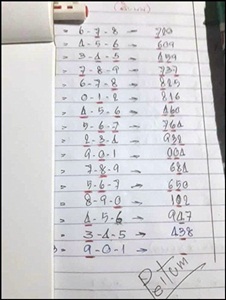 = 6-7-8 → 780
= 4-5-6 → 609
= 3-4-5 → 459
= 7-8-9 → 737
= 6-7-8 → 885
= 0-1-2 → 216
= 4-5-6 → 460
= 5-6-7 → 764
= 2-3-4 → 932
= 9-0-1 → 004
= 7-8-9 → 684
= 5-6-7 → 650
= 8-9-0 → 102
= 4-5-6 → 947
= 3-4-5 → 438
= 9-0-1 →